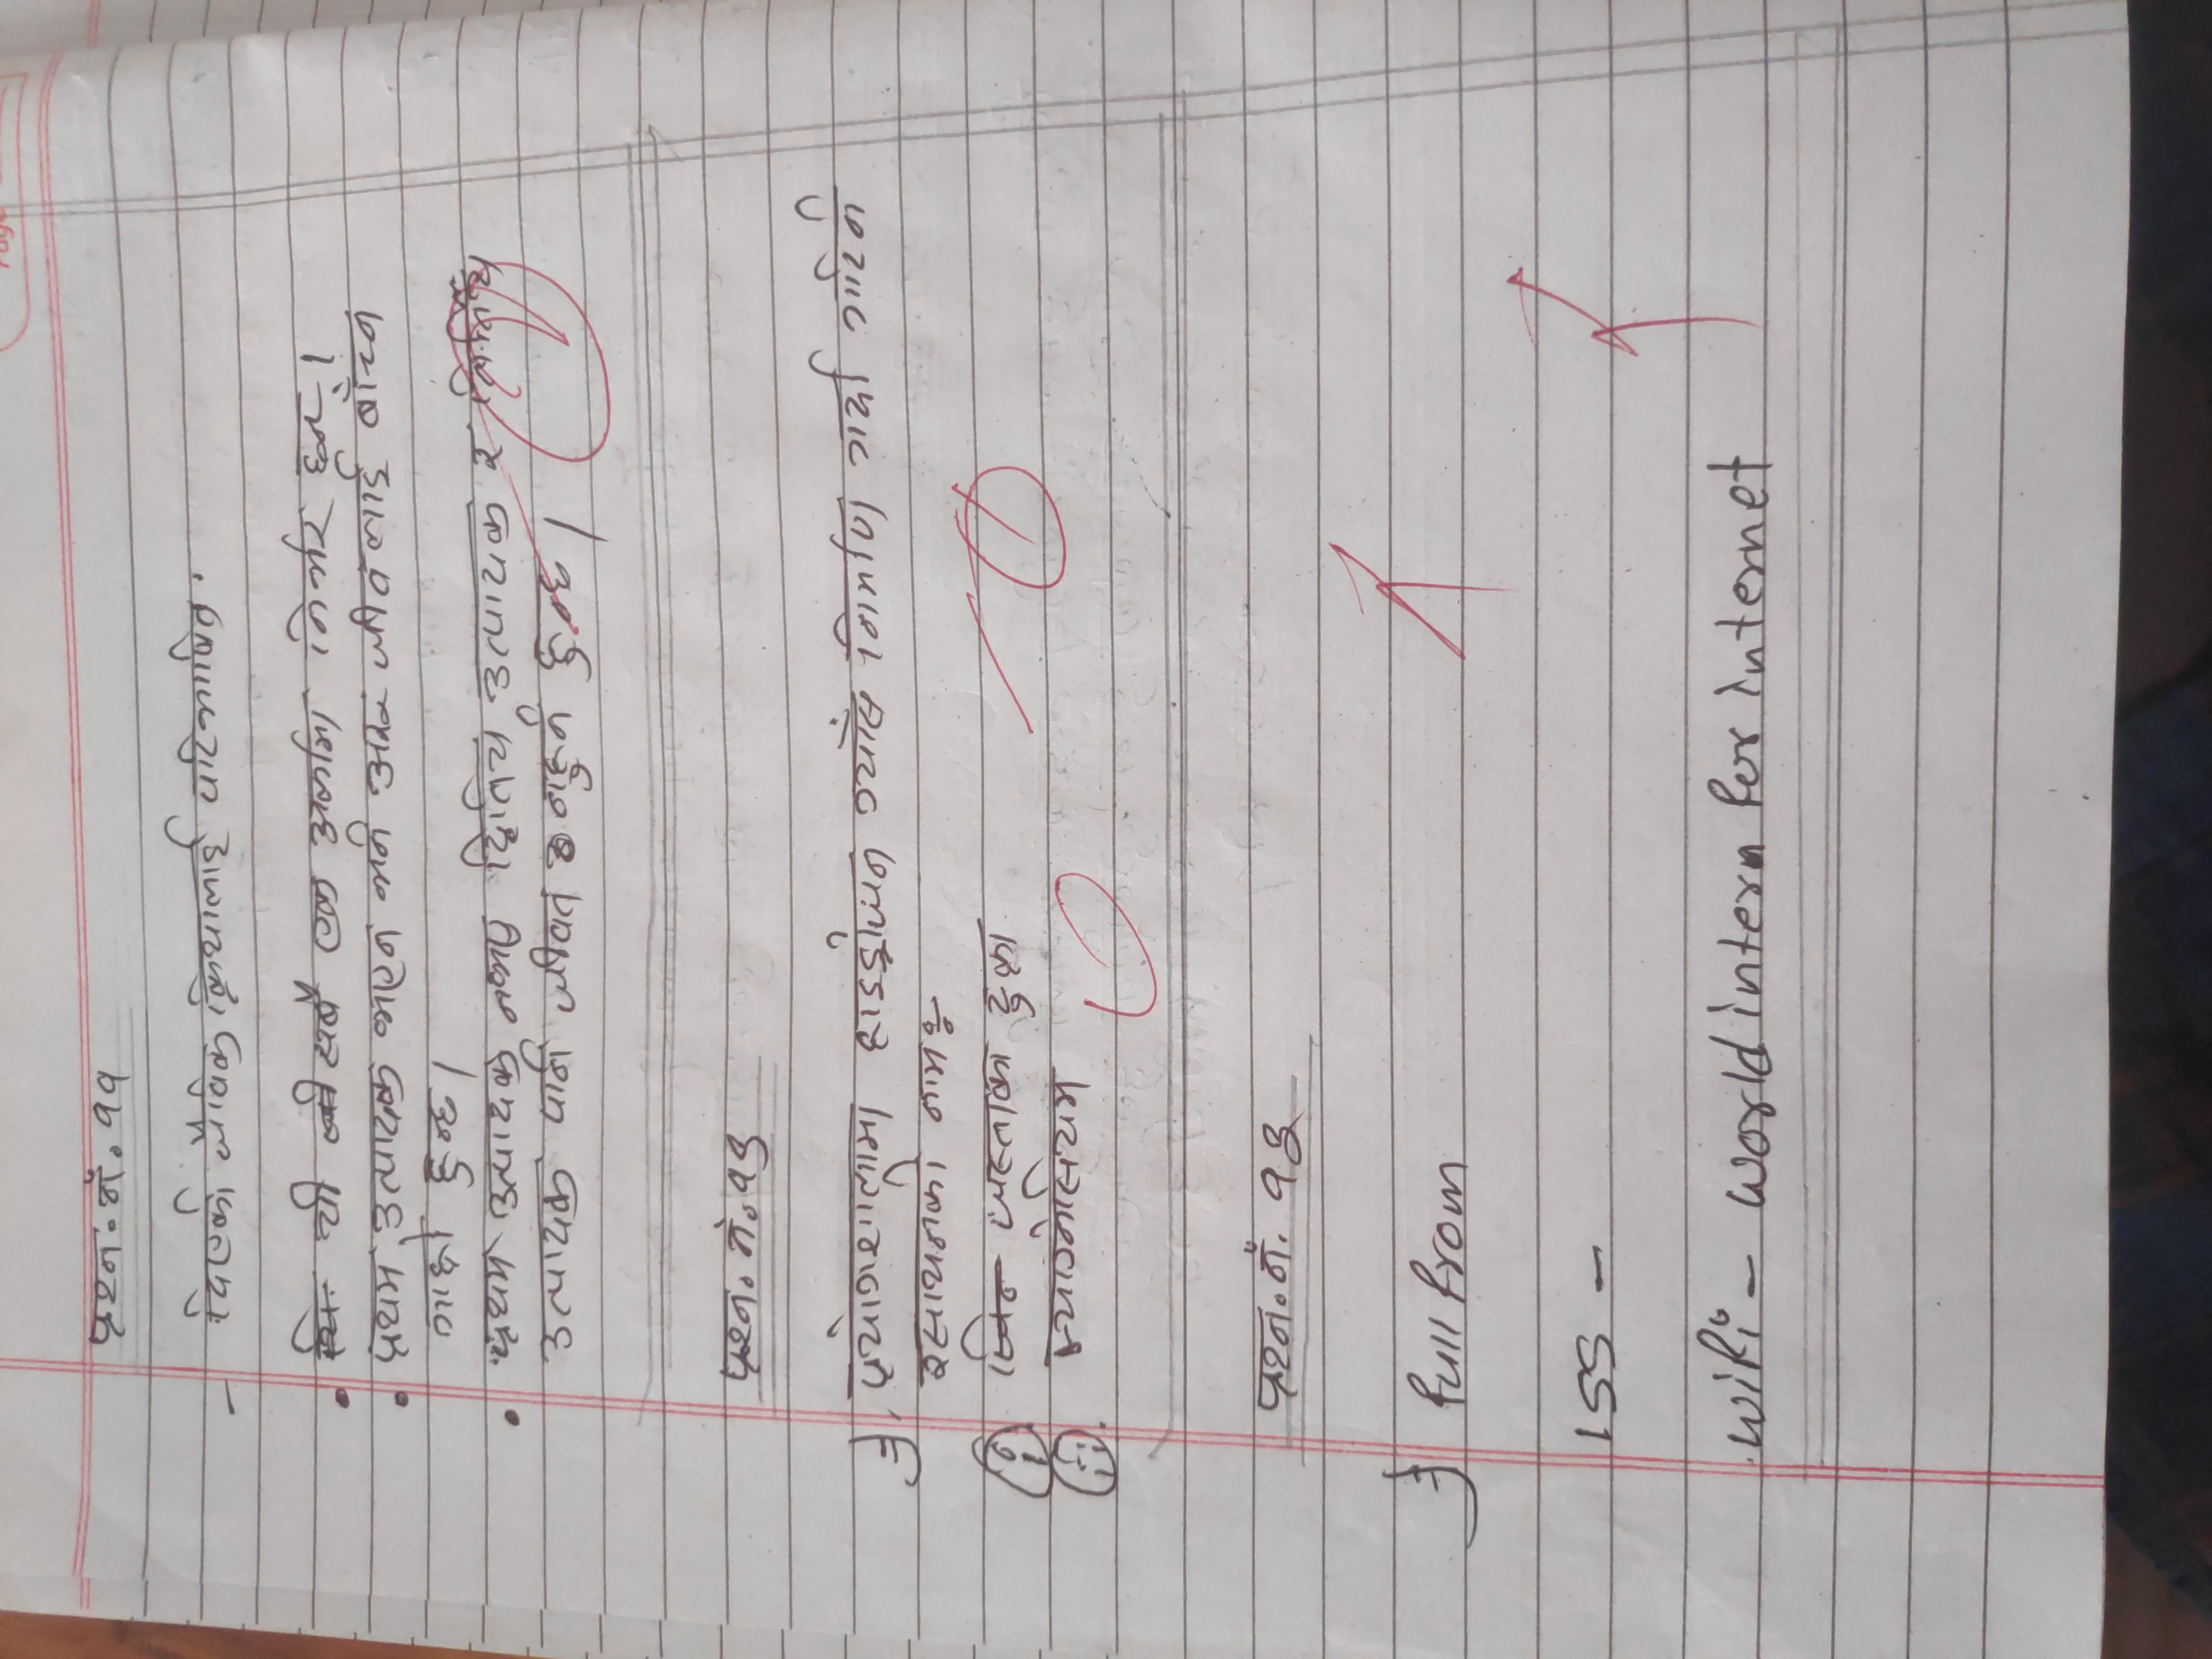 प्रश्न.नं. ११
- दिएको जैविक क्रियालाई परिभाषित.
• यी सबै एक अर्कामा निर्भर छन् ।
• प्रथम उत्पादक भएन भने अरु जीवलाई बाँच्न
गाह्रो हुन्छ ।
• प्रथम उत्पादक नभए द्वितिय उत्पादक र
उत्पादक पनि जीवत नहुने हुन्छ ।
प्रश्न.नं.१३
प्रयोगशालामा हाइड्रोजन ग्याँस निर्माण गर्दा गरिने
रसायनको नामः
i. जस्ताका टुक्रा
ii. म्याग्नेसियम
प्रश्न.नं. १३
full from
ISS -
wifi - world intern for internet